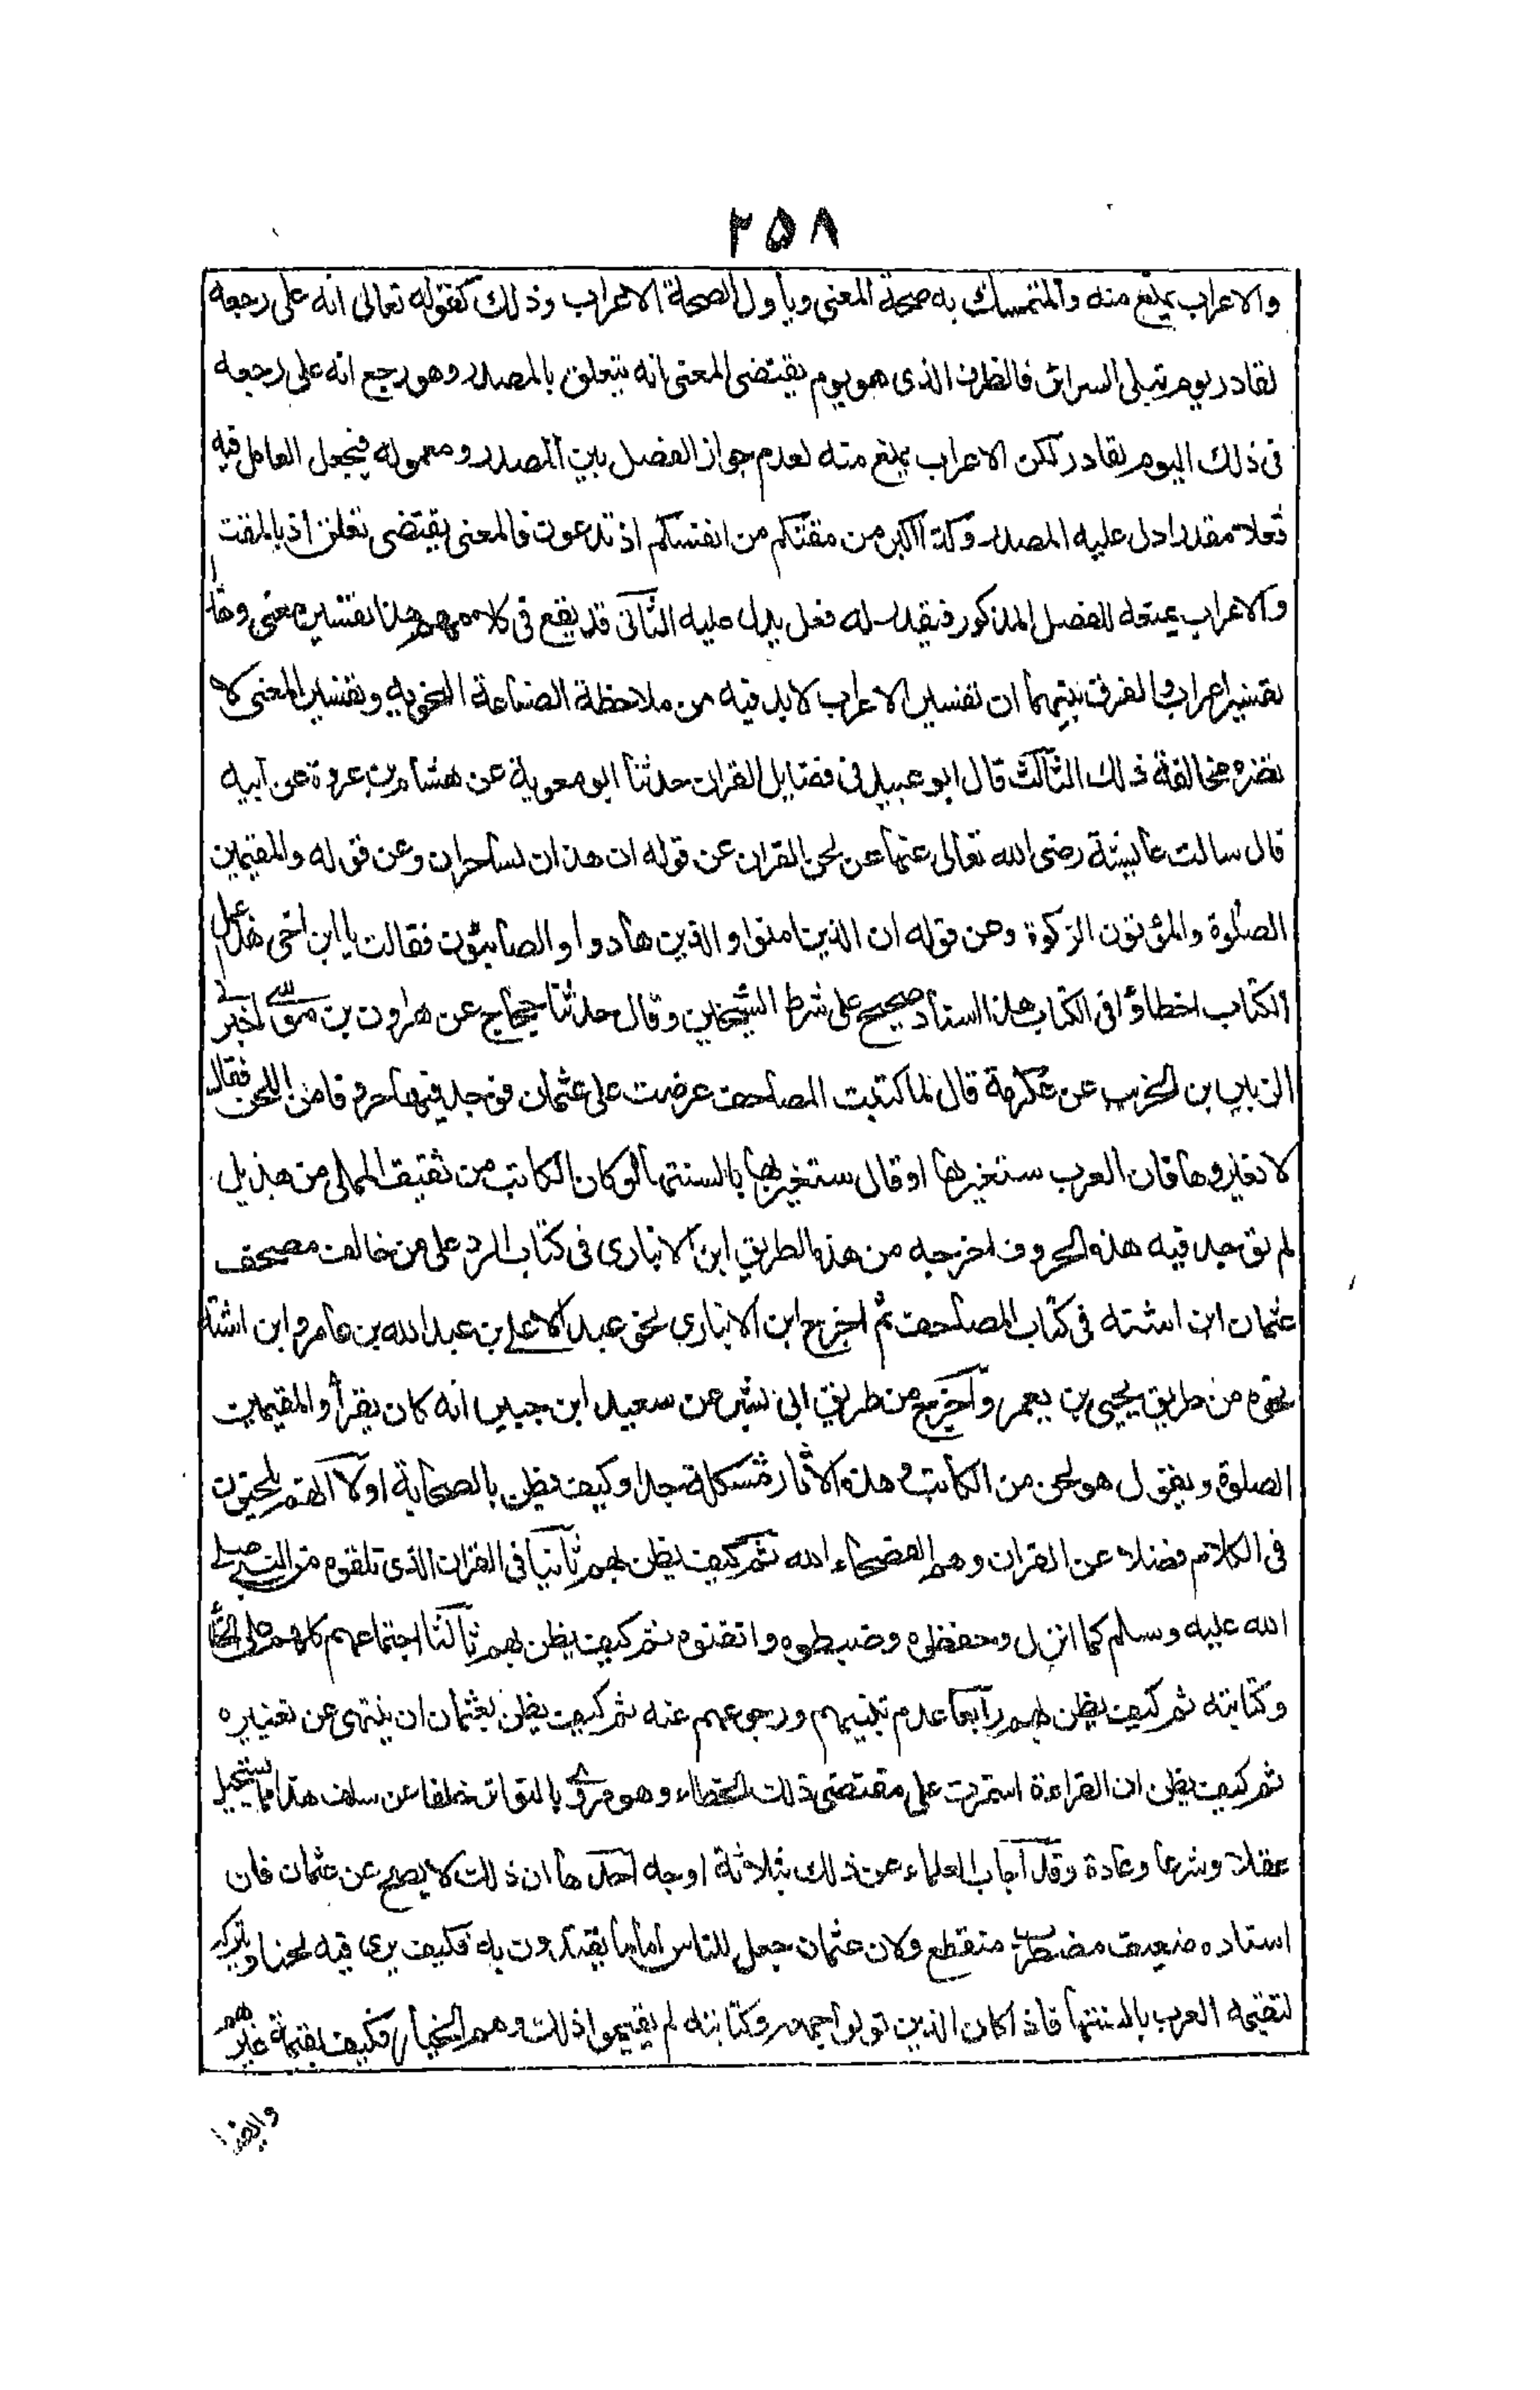 ٢٥٨
والاعراب يمنع منه والمتمسك به صحة المعنى وياول لصحة الاعراب وذلك كقوله تعالى انه على رجعه
لقادر يوم تبلى السرائر فالظرف الذى هو يوم يقتضى المعنى انه يتعلق بالمصدر وهو رجع انه على رجعه
فى ذلك اليوم لقادر لكن الاعراب يمنع منه لعدم جواز الفصل بين المصدر ومعموله فيجعل العامل فيه
فعلا مقدرا دل عليه المصدر وكذا اكبر من مقتكم من انفسكم اذ تدعون فالمعنى يقتضى تعلق اذ بالمقت
والاعراب يمنعه للفصل المذكور فيقدر له فعل يدل عليه الثانى قد يقع فى كلامهم هذا تفسير معنى وهذا
تفسير اعراب والفرق بينهما ان تفسير الاعراب لابد فيه من ملاحظة الصناعة النحويه وتفسير المعنى لا
تضره مخالفة ذلك الثالث قال ابو عبيد فى فضايل القران حدثنا ابو معوية عن هشام بن عروة عن ابيه
قال سالت عايشة رضى الله تعالى عنها عن لحن القران عن قوله ان هذان لساحران وعن قوله والمقيمين
الصلوة والمؤتون الزكوة وعن قوله ان الذين امنوا والذين هادوا والصابئون فقالت يا ابن اخى هذا عمل
الكتاب اخطاؤا فى الكتاب هذا اسناد صحيح على شرط الشيخين وقال حدثنا حجاج عن هارون بن موسى اخبرنى
الزبير بن الخريت عن عكرمة قال لما كتبت المصاحف عرضت على عثمان فوجد فيها حروفا من اللحن فقال
لا تغيروها فان العرب ستغيرها او قال ستغيرها بالسنتها لو كان الكاتب من ثقيف والمملى من هذيل
لم توجد فيه هذه الحروف اخرجه من هذا الطريق ابن الانبارى فى كتاب الرد على من خالف مصحف
عثمان ابن اشته فى كتاب المصاحف ثم اخرج ابن الانبارى نحوه عبد الاعلى بن عبد الله بن عامر وابن اشته
نحوه من طريق يحيى بن يعمر واخرج من طريق ابى بشر عن سعيد ابن جبير انه كان يقرأ والمقيمين
الصلوة ويقول هو لحن من الكاتب وهذه الاثار مشكلة جدا وكيف يظن بالصحابة اولا انهم يلحنون
فى الكلام فضلا عن القران وهم الفصحاء الله ثم كيف يظن بهم ثانيا فى القران الذى تلقوه من النبى صلى
الله عليه وسلم كما انزل وحفظوه وضبطوه واتقنوه ثم كيف يظن بهم ثالثا اجتماعهم كلهم على الخطأ
وكتابته ثم كيف يظن بهم رابعا عدم تنبههم ورجوعهم عنه ثم كيف يظن بعثمان ان ينتهى عن تغييره
ثم كيف يظن ان القراءة استمرت على مقتضى ذلك الخطاء وهو مروى بالتواتر خلفا عن سلف هذا مما يستحيل
عقلا وشرعا وعادة وقد اجاب العلماء عن ذلك بثلاثة اوجه احدها ان ذلك لا يصح عن عثمان فان
اسناده ضعيف مضطرب منقطع ولان عثمان جعل للناس اماما يقتدون به فكيف يرى فيه لحنا ويتركه
لتقيمه العرب بالسنتها فاذا كان الذين تولوا جمعه وكتابته لم يقيموا ذلك وهم الخيار فكيف يقيمه غيرهم
وايضا